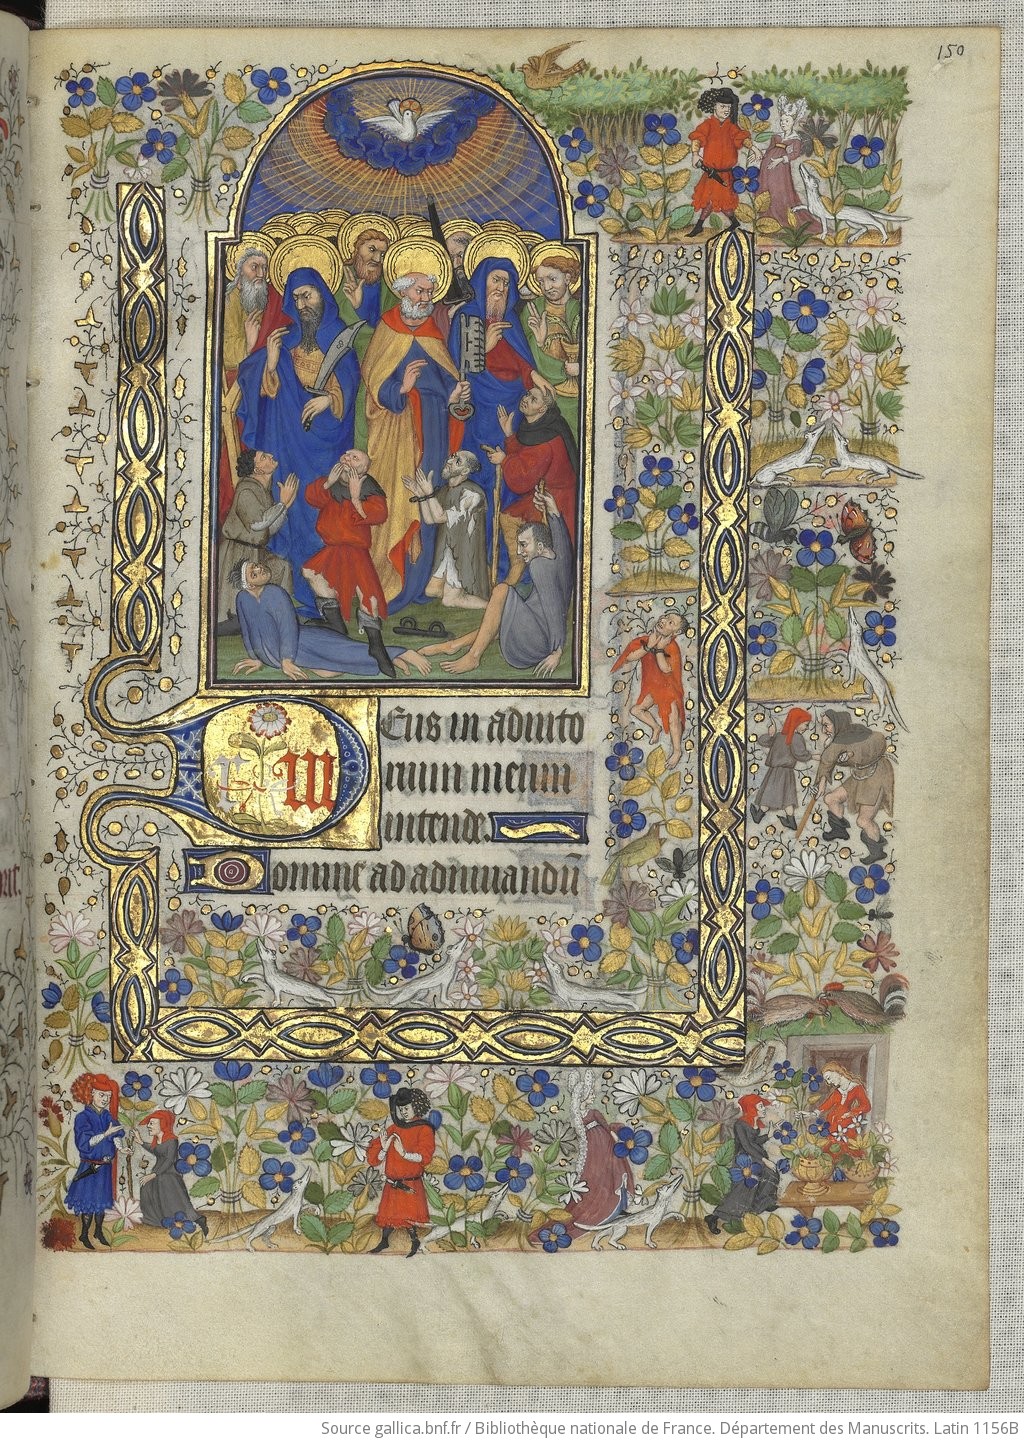 150
Deus in adiuto
rium meum
intende.
Domine ad adiuuandū
Source gallica.bnf.fr / Bibliothèque nationale de France. Département des Manuscrits. Latin 1156B